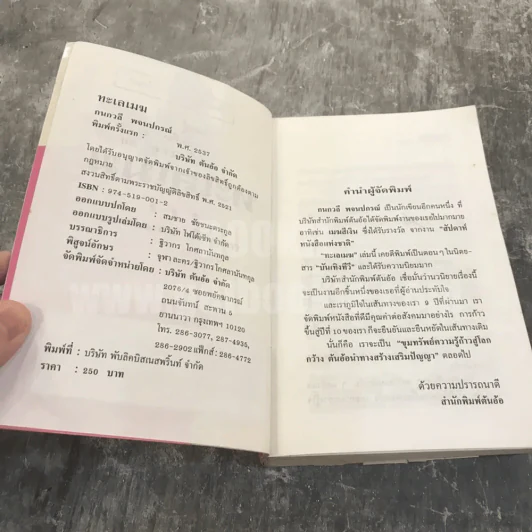 ทะเลเมฆ
กนกวลี พจนปกรณ์
พิมพ์ครั้งแรก : พ.ศ. 2537
บริษัท ต้นอ้อ จำกัด
โดยได้รับอนุญาตจัดพิมพ์จากเจ้าของลิขสิทธิ์ถูกต้องตาม
กฎหมาย
สงวนลิขสิทธิ์ตามพระราชบัญญัติลิขสิทธิ์ พ.ศ. 2521
ISBN : 974-519-001-2
ออกแบบปกโดย : สมชาย
ออกแบบรูปเล่มโดย : บริษัท จำกัด
บรรณาธิการ : ฐิวากร โกศถานันทกูล
พิสูจน์อักษร : จุฬาและคร/ฐิวากร โกศถานันทกูล
จัดพิมพ์จัดจำหน่ายโดย : บริษัท ต้นอ้อ จำกัด
2076/4 ซอยพยัคฆาภรณ์
ถนนจันทน์ สะพาน 5
ยานนาวา กรุงเทพฯ 10120
โทร. 286-3077, 287-4935,
286-2902 แฟ็กส์ : 286-4772
พิมพ์ที่ : บริษัท พับลิคบิสเนสพริ้นท์ จำกัด
ราคา : 250 บาท
คำนำผู้จัดพิมพ์
กนกวลี พจนปกรณ์ เป็นนักเขียนอีกคนหนึ่ง ที่
บริษัทสำนักพิมพ์ต้นอ้อได้จัดพิมพ์งานของเธอไปมากมาย
อาทิเช่น เมฆสีเงิน ซึ่งได้รับรางวัล จากงาน "สัปดาห์
หนังสือแห่งชาติ"
"ทะเลเมฆ" เล่มนี้ เคยตีพิมพ์เป็นตอนๆ ในนิตย-
สาร "บันเทิงทีวี" และได้รับความนิยมมาก
บริษัทสำนักพิมพ์ต้นอ้อ เชื่อมั่นว่านวนิยายเรื่องนี้
จะเป็นงานอีกชิ้นหนึ่งของเธอที่ผู้อ่านประทับใจ
และเราภูมิใจในเส้นทางของเรา 9 ปีที่ผ่านมา เรา
จัดพิมพ์หนังสือที่ดีมีคุณค่าต่อสังคมมาอย่างไร การก้าว
ขึ้นสู่ปีที่ 10 ของเรา ก็จะยืนยันและยืนหยัดในเส้นทางเดิม
นั่นก็คือ เราจะเป็น "ขุมทรัพย์ความรู้ก้าวสู่โลก
กว้าง ต้นอ้อนำทางสร้างเสริมปัญญา" ตลอดไป
ด้วยความปรารถนาดี
สำนักพิมพ์ต้นอ้อ